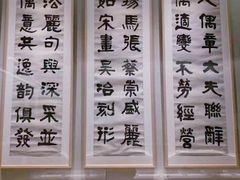 人偶章大夫聯辭
偶適變不勞經營
揚馬張蔡崇盛麗
如宋畫吳冶刻形
麗句與深采並
偶意共逸韵俱發